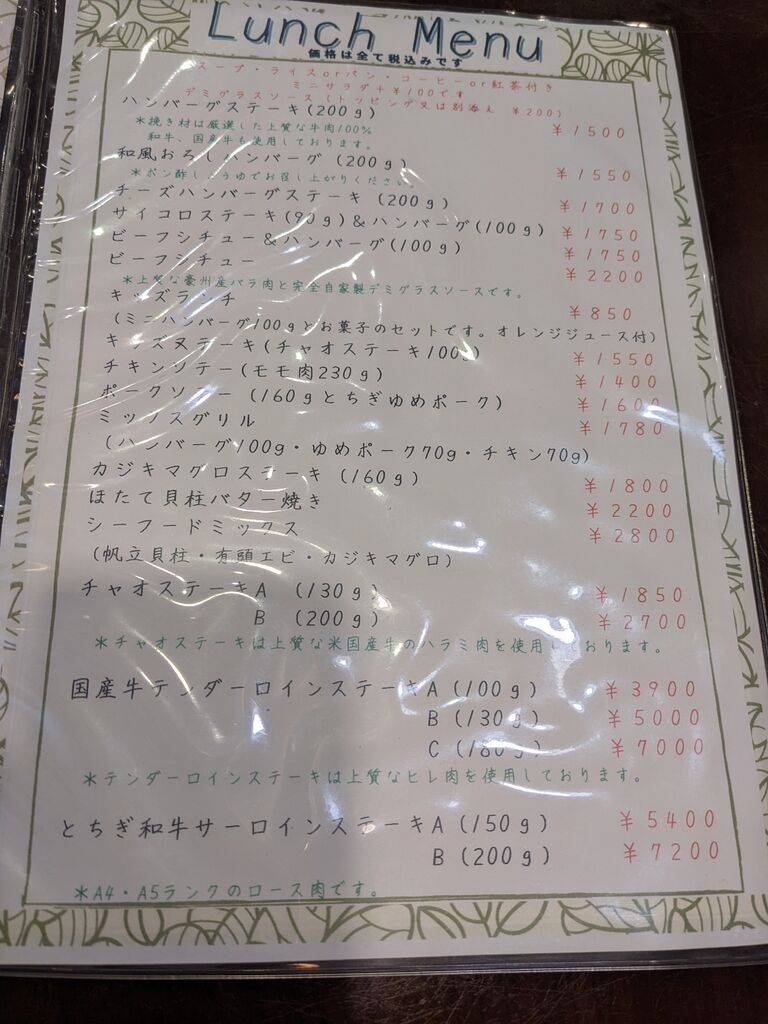 Lunch Menu
価格は全て税込みです
スープ・ライスorパン・コーヒーor紅茶付き
ミニサラダ+¥100です
デミグラスソース(トッピング又は別添え ¥200)
ハンバーグステーキ(200g) ¥1500
*挽き材は厳選した上質な牛肉100%
和牛、国産牛も使用しております。
和風おろしハンバーグ(200g) ¥1550
*ポン酢しょうゆでお召し上がりください。
チーズハンバーグステーキ(200g) ¥1700
サイコロステーキ(90g)&ハンバーグ(100g) ¥1750
ビーフシチュー&ハンバーグ(100g) ¥1750
ビーフシチュー ¥2200
*上質な豪州産バラ肉と完全自家製デミグラスソースです。
キッズランチ ¥850
(ミニハンバーグ100gとお菓子のセットです。オレンジジュース付)
キッズステーキ(チャオステーキ100g) ¥1550
チキンソテー(モモ肉230g) ¥1400
ポークソテー(160gとちぎゆめポーク) ¥1600
ミックスグリル ¥1780
(ハンバーグ100g・ゆめポーク70g・チキン70g)
カジキマグロステーキ(160g) ¥1800
ほたて貝柱バター焼き ¥2200
シーフードミックス ¥2800
(帆立貝柱・有頭エビ・カジキマグロ)
チャオステーキA (130g) ¥1850
B (200g) ¥2700
*チャオステーキは上質な米国産牛のハラミ肉を使用しております。
国産牛テンダーロインステーキA(100g) ¥3900
B(130g) ¥5000
C(180g) ¥7000
*テンダーロインステーキは上質なヒレ肉を使用しております。
とちぎ和牛サーロインステーキA(150g) ¥5400
B(200g) ¥7200
*A4・A5ランクのロース肉です。